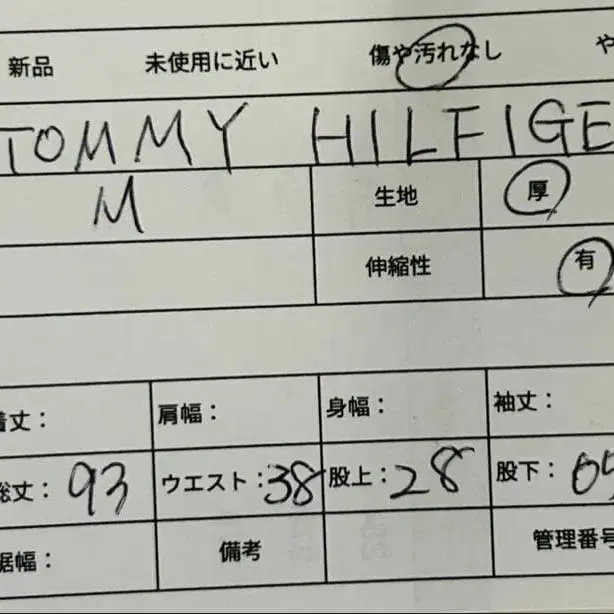 新品 未使用に近い 傷や汚れなし や
TOMMY HILFIGE
M 生地 厚
伸縮性 有
着丈： 肩幅： 身幅： 袖丈：
総丈：93 ウエスト：38 股上：28 股下：
裾幅： 備考 管理番号